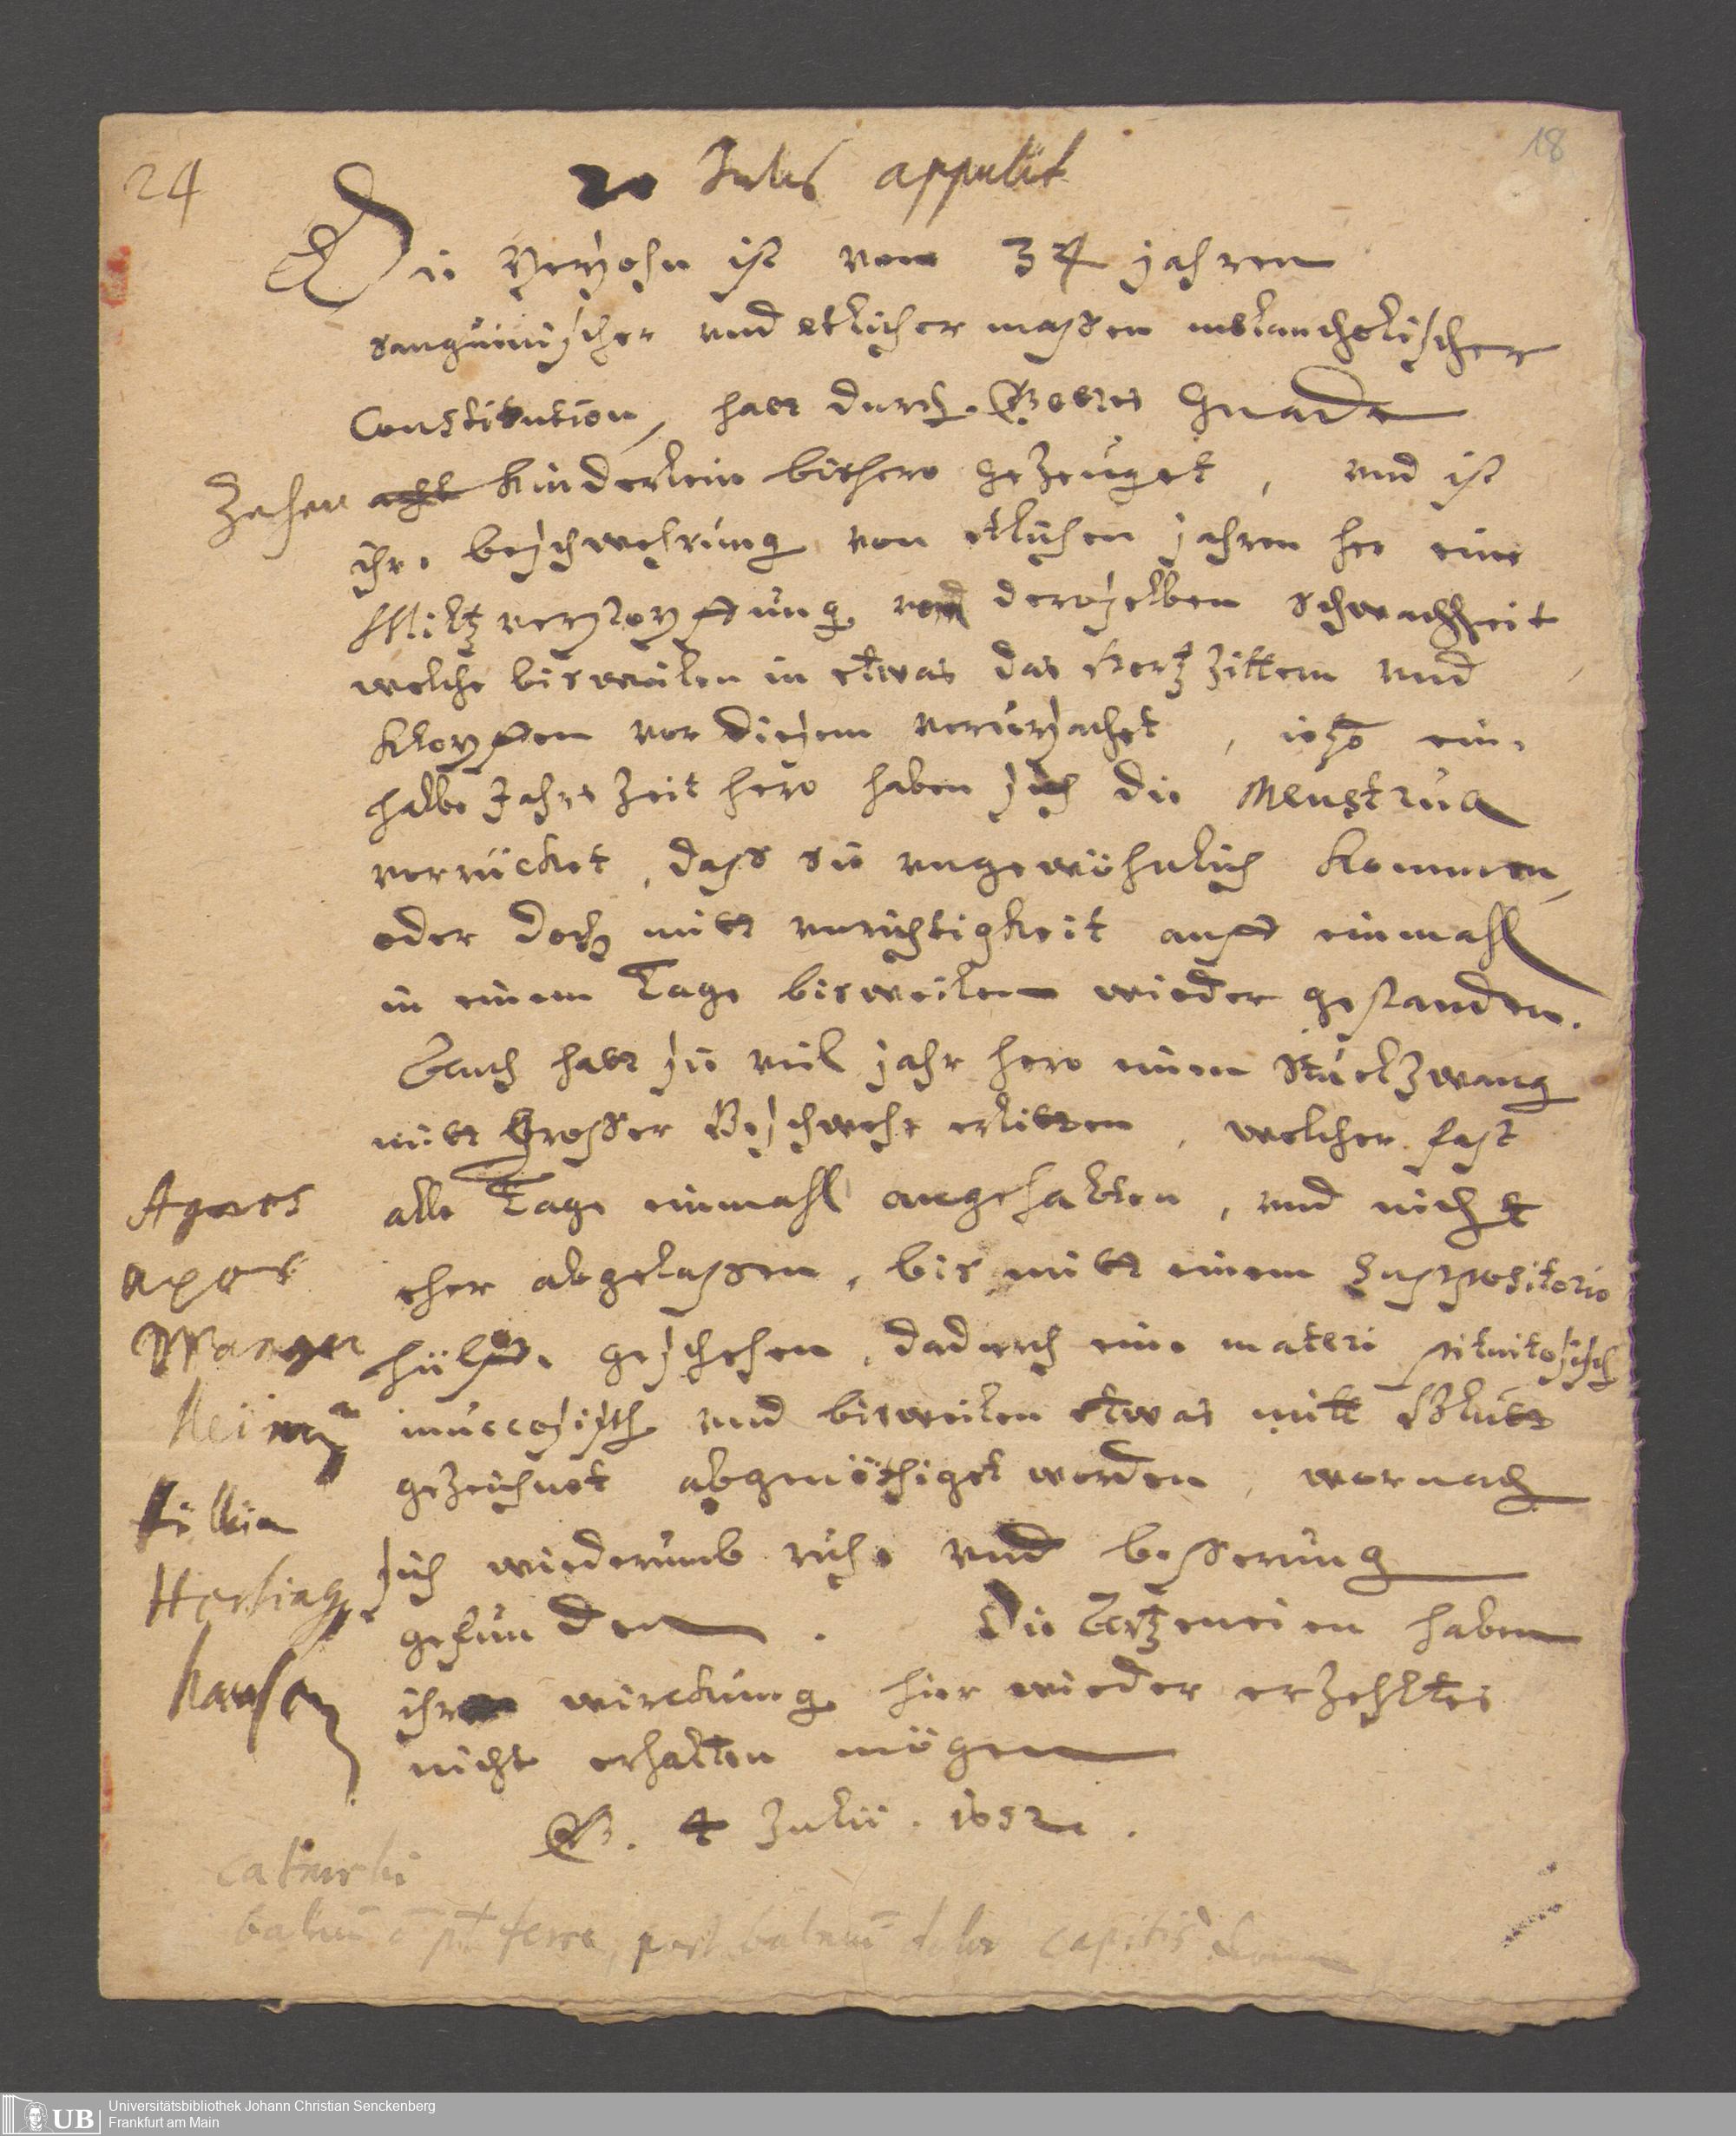 24
18
20 Julij appulit
Die Persohn ist von 34 jahren
sanguinischer vnd etlicher massen melancholischer
Constitution, hatt durch Gottes Gnade
Zehen acht Kinderlein bishero gezeuget, vnd ist
ihre beschwehrung von etlichen jahren her eine
Miltzverstopffung vnd deroselben schwachheit
welche bisweilen in etwas das Hertzzittern vnd
Klopffen vor diesem verursachet, itzo ein
halbe Jahrs Zeit hero haben sich die Menstrua
verrücket, dass sie vngewöhnlich kommen,
oder doch mitt vnrichtigkeit auff einmahl
in einem Tage bisweilen wieder gestanden.
Auch hatt sie viel jahr hero einen Stuelzwang
mitt Grosser Beschwehr erlitten, welcher fast
alle Tage einmahl angehalten, vnd nicht
eher abgelassen, bis mitt einem Suppositorio
hülffe geschehen, dadurch eine materi pituitosisch
muccosisch vnd bisweilen etwas mitt Blutt
gezeichnet abgenöthiget worden, wornach
sich wiederumb ruhe vnd besserung
gefunden. Die Artzeneien haben
ihre wirckung hier wieder erzehltes
nicht erhalten mögen
G. 4 Julii. 1652.
Agnes
hausen
catarrhi
post balneum dolor capitis
Universitätsbibliothek Johann Christian Senckenberg
Frankfurt am Main
UB